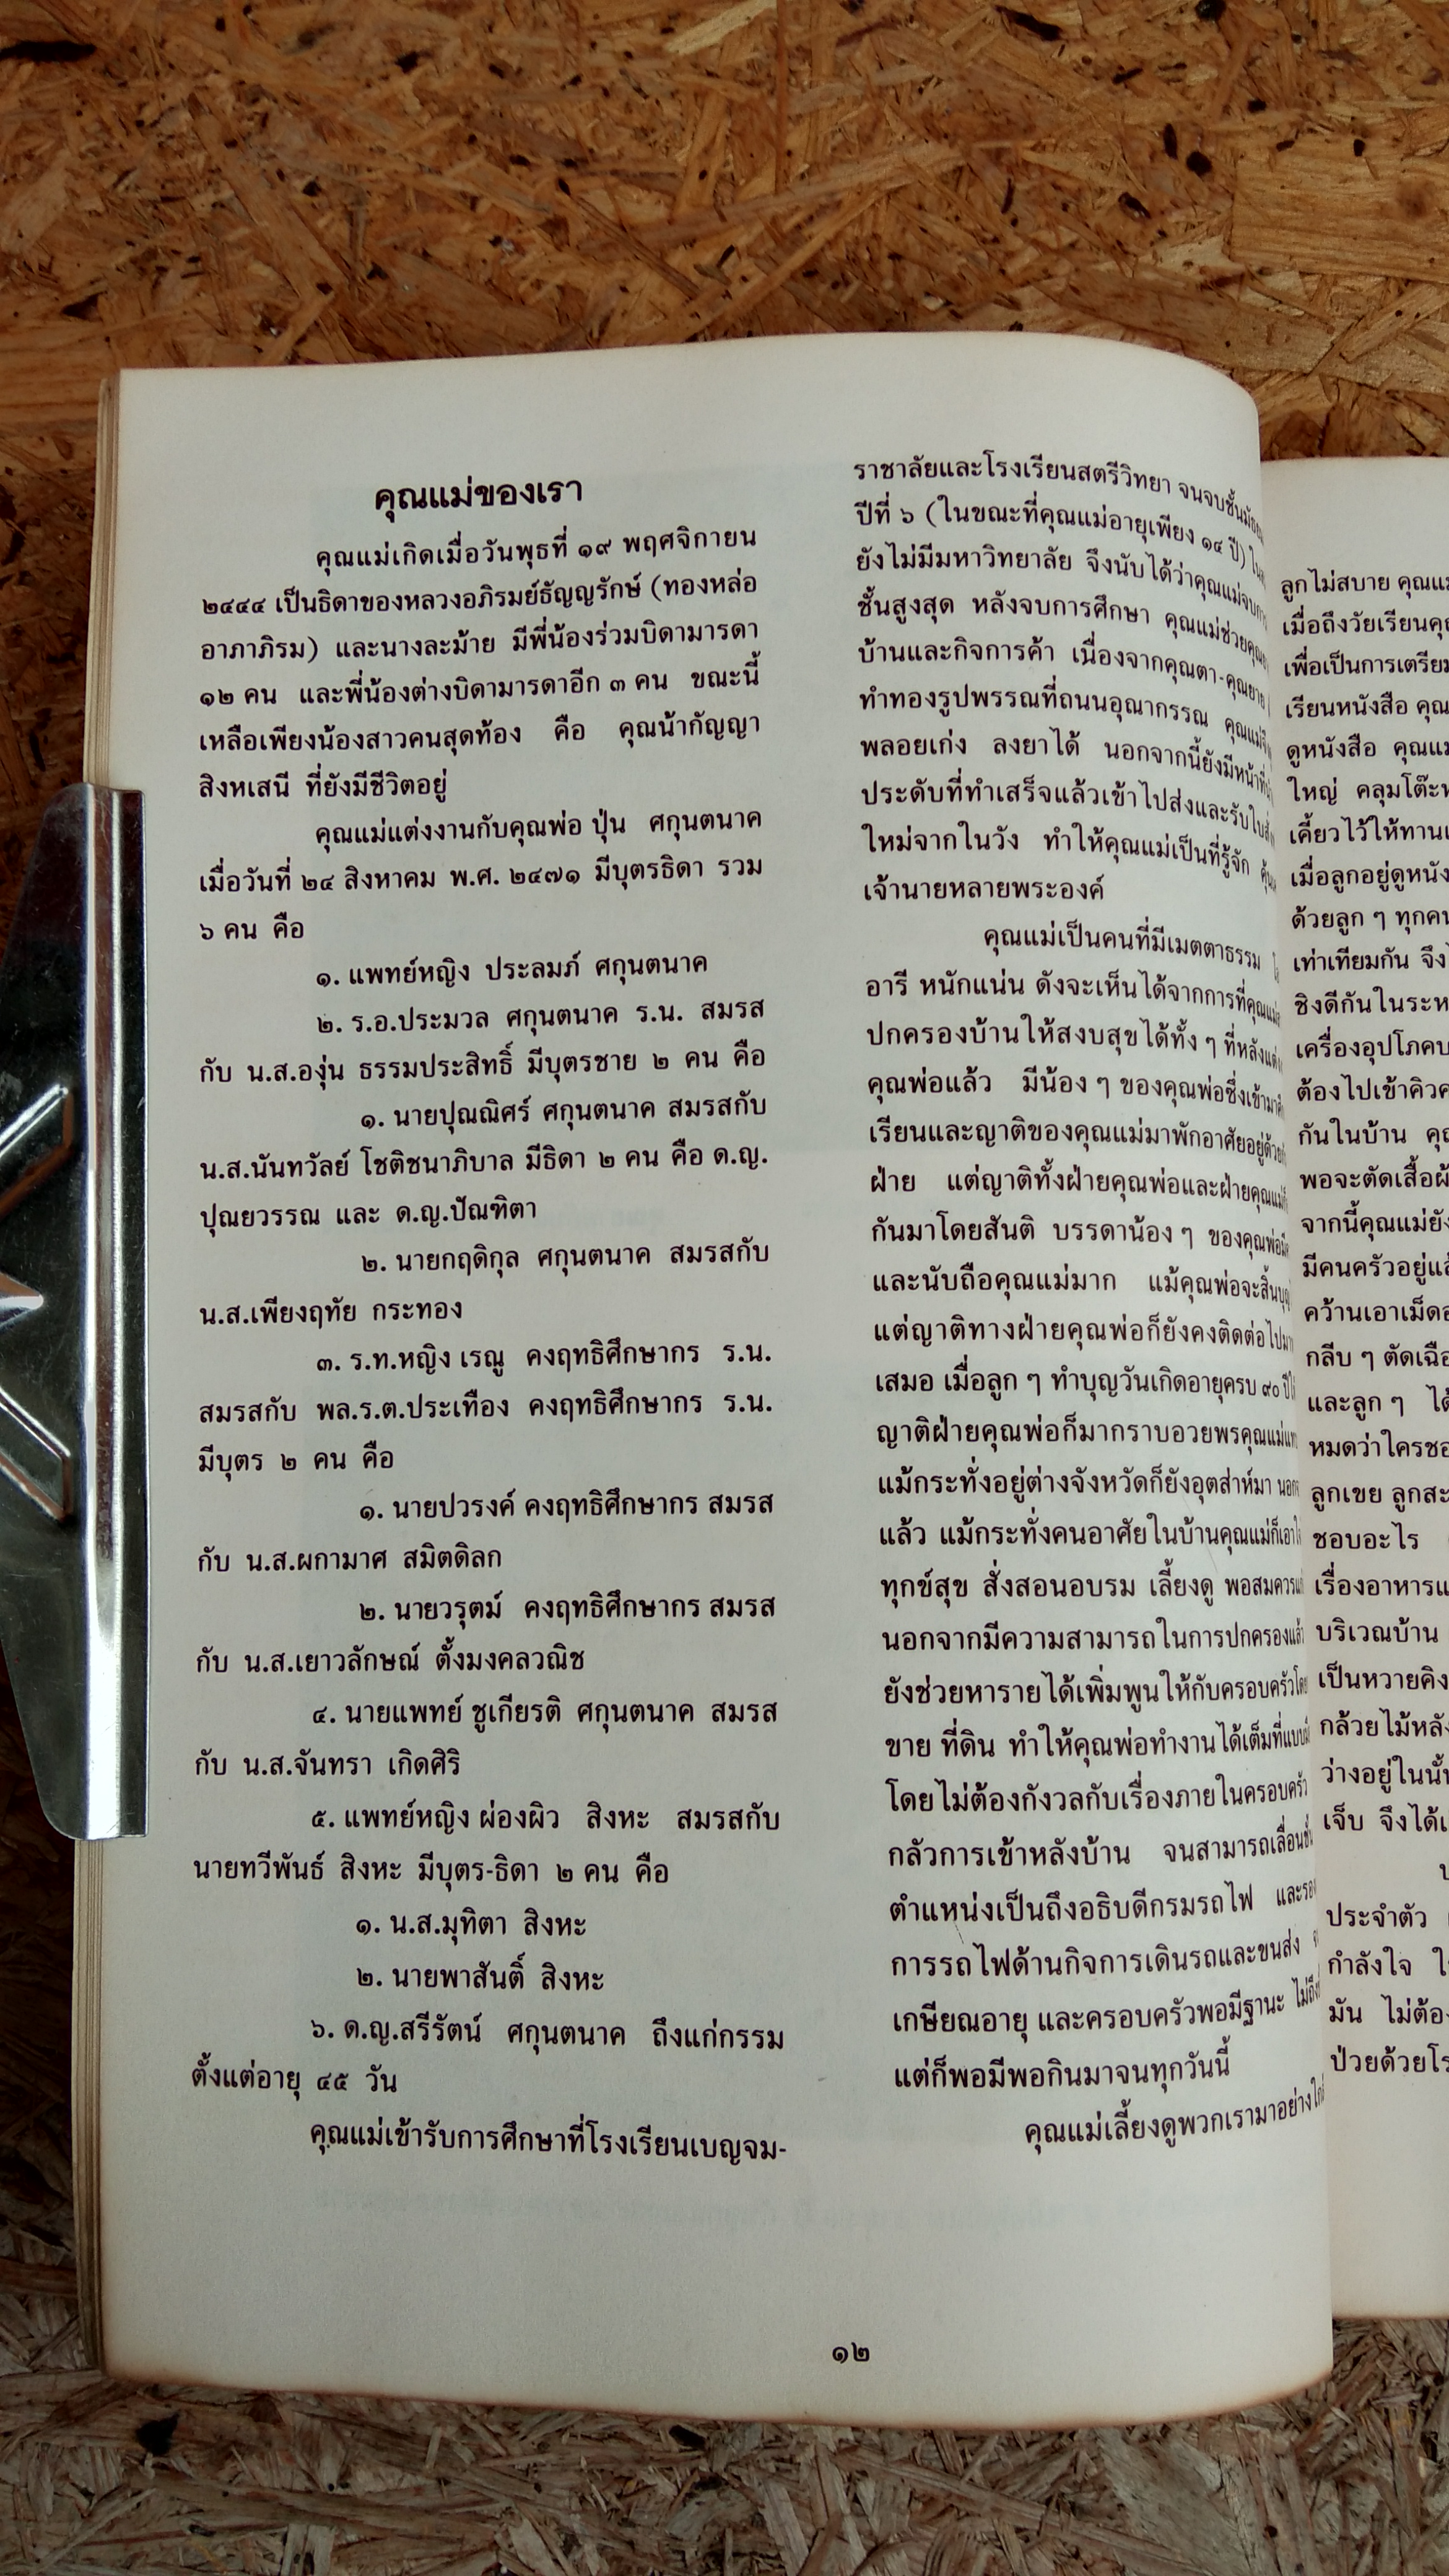 คุณแม่ของเรา
คุณแม่เกิดเมื่อวันพุธที่ ๑๙ พฤศจิกายน
๒๔๔๔ เป็นธิดาของหลวงอภิรมย์ธัญญรักษ์ (ทองหล่อ
อาภาภิรม) และนางละม้าย มีพี่น้องร่วมบิดามารดา
๑๒ คน และพี่น้องต่างบิดามารดาอีก ๓ คน ขณะนี้
เหลือเพียงน้องสาวคนสุดท้อง คือ คุณน้ากัญญา
สิงหเสนี ที่ยังมีชีวิตอยู่
คุณแม่แต่งงานกับคุณพ่อ ปุ่น ศกุนตนาค
เมื่อวันที่ ๒๔ สิงหาคม พ.ศ. ๒๔๗๑ มีบุตรธิดา รวม
๖ คน คือ
๑. แพทย์หญิง ประลมภ์ ศกุนตนาค
๒. ร.อ.ประมวล ศกุนตนาค ร.น. สมรส
กับ น.ส.องุ่น ธรรมประสิทธิ์ มีบุตรชาย ๒ คน คือ
๑. นายปุณณิศร์ ศกุนตนาค สมรสกับ
น.ส.นันทวัลย์ โชติชนาภิบาล มีธิดา ๒ คน คือ ด.ญ.
ปุณยวรรณ และ ด.ญ.ปัณฑิตา
๒. นายกฤดิกุล ศกุนตนาค สมรสกับ
น.ส.เพียงฤทัย กระทอง
๓. ร.ท.หญิง เรณู คงฤทธิศึกษากร ร.น.
สมรสกับ พล.ร.ต.ประเทือง คงฤทธิศึกษากร ร.น.
มีบุตร ๒ คน คือ
๑. นายปวรงค์ คงฤทธิศึกษากร สมรส
กับ น.ส.ผกามาศ สมิตดิลก
๒. นายวรุตม์ คงฤทธิศึกษากร สมรส
กับ น.ส.เยาวลักษณ์ ตั้งมงคลวณิช
๔. นายแพทย์ ชูเกียรติ ศกุนตนาค สมรส
กับ น.ส.จันทรา เกิดศิริ
๕. แพทย์หญิง ผ่องผิว สิงหะ สมรสกับ
นายทวีพันธ์ สิงหะ มีบุตร-ธิดา ๒ คน คือ
๑. น.ส.มุทิตา สิงหะ
๒. นายพาสันติ์ สิงหะ
๖. ด.ญ.สรีรัตน์ ศกุนตนาค ถึงแก่กรรม
ตั้งแต่อายุ ๔๕ วัน
คุณแม่เข้ารับการศึกษาที่โรงเรียนเบญจม-
ราชาลัยและโรงเรียนสตรีวิทยา จนจบชั้น
ปีที่ ๖ (ในขณะที่คุณแม่อายุเพียง ๑๔ ปี)
ยังไม่มีมหาวิทยาลัย จึงนับได้ว่าคุณแม่จบ
ชั้นสูงสุด หลังจบการศึกษา คุณแม่ช่วย
บ้านและกิจการค้า เนื่องจากคุณตา-คุณยาย
ทำทองรูปพรรณที่ถนนอุณากรรณ คุณแม่
พลอยเก่ง ลงยาได้ นอกจากนี้ยังมีหน้าที่
ประดับที่ทำเสร็จแล้วเข้าไปส่งและรับใบสั่ง
ใหม่จากในวัง ทำให้คุณแม่เป็นที่รู้จัก
เจ้านายหลายพระองค์
คุณแม่เป็นคนที่มีเมตตาธรรม
อารี หนักแน่น ดังจะเห็นได้จากการที่คุณแม่
ปกครองบ้านให้สงบสุขได้ทั้ง ๆ ที่หลัง
คุณพ่อแล้ว มีน้อง ๆ ของคุณพ่อซึ่งเข้ามา
เรียนและญาติของคุณแม่มาพักอาศัยอยู่ด้วย
ฝ่าย แต่ญาติทั้งฝ่ายคุณพ่อและฝ่ายคุณแม่
กันมาโดยสันติ บรรดาน้อง ๆ ของคุณพ่อ
และนับถือคุณแม่มาก แม้คุณพ่อจะสิ้น
แต่ญาติทางฝ่ายคุณพ่อก็ยังคงติดต่อไป
เสมอ เมื่อลูก ๆ ทำบุญวันเกิดอายุครบ ๙๐ ปี
ญาติฝ่ายคุณพ่อก็มากราบอวยพรคุณแม่
แม้กระทั่งอยู่ต่างจังหวัดก็ยังอุตส่าห์มา
แล้ว แม้กระทั่งคนอาศัยในบ้านคุณแม่ก็
ทุกข์สุข สั่งสอนอบรม เลี้ยงดู พอสมควร
นอกจากมีความสามารถในการปกครองแล้ว
ยังช่วยหารายได้เพิ่มพูนให้กับครอบครัว
ขาย ที่ดิน ทำให้คุณพ่อทำงานได้เต็มที่
โดยไม่ต้องกังวลกับเรื่องภายในครอบครัว
กลัวการเข้าหลังบ้าน จนสามารถเลื่อน
ตำแหน่งเป็นถึงอธิบดีกรมรถไฟ
การรถไฟด้านกิจการเดินรถและขนส่ง
เกษียณอายุ และครอบครัวพอมีฐานะ
แต่ก็พอมีพอกินมาจนทุกวันนี้
คุณแม่เลี้ยงดูพวกเรามาอย่าง
๑๒
ลูกไม่สบาย
เมื่อถึงวัยเรียน
เพื่อเป็นการ
เรียนหนังสือ
ดูหนังสือ
ใหญ่
เคี้ยวไว้ให้ทาน
เมื่อลูกอยู่
ด้วยลูก ๆ
เท่าเทียมกัน
ชิงดีกัน
เครื่องอุปโภค
ต้องไปเข้าคิว
กันในบ้าน
พอจะตัด
จากนี้คุณแม่
มีคนครัวอยู่
คว้านเอาเม็ด
กลีบ ๆ
และลูก ๆ
หมดว่าใคร
ลูกเขย
ชอบอะไร
เรื่องอาหาร
บริเวณบ้าน
เป็นหวาย
กล้วยไม้
ว่างอยู่ใน
เจ็บ จึงได้
ประจำตัว
กำลังใจ
มัน ไม่ต้อง
ป่วยด้วย